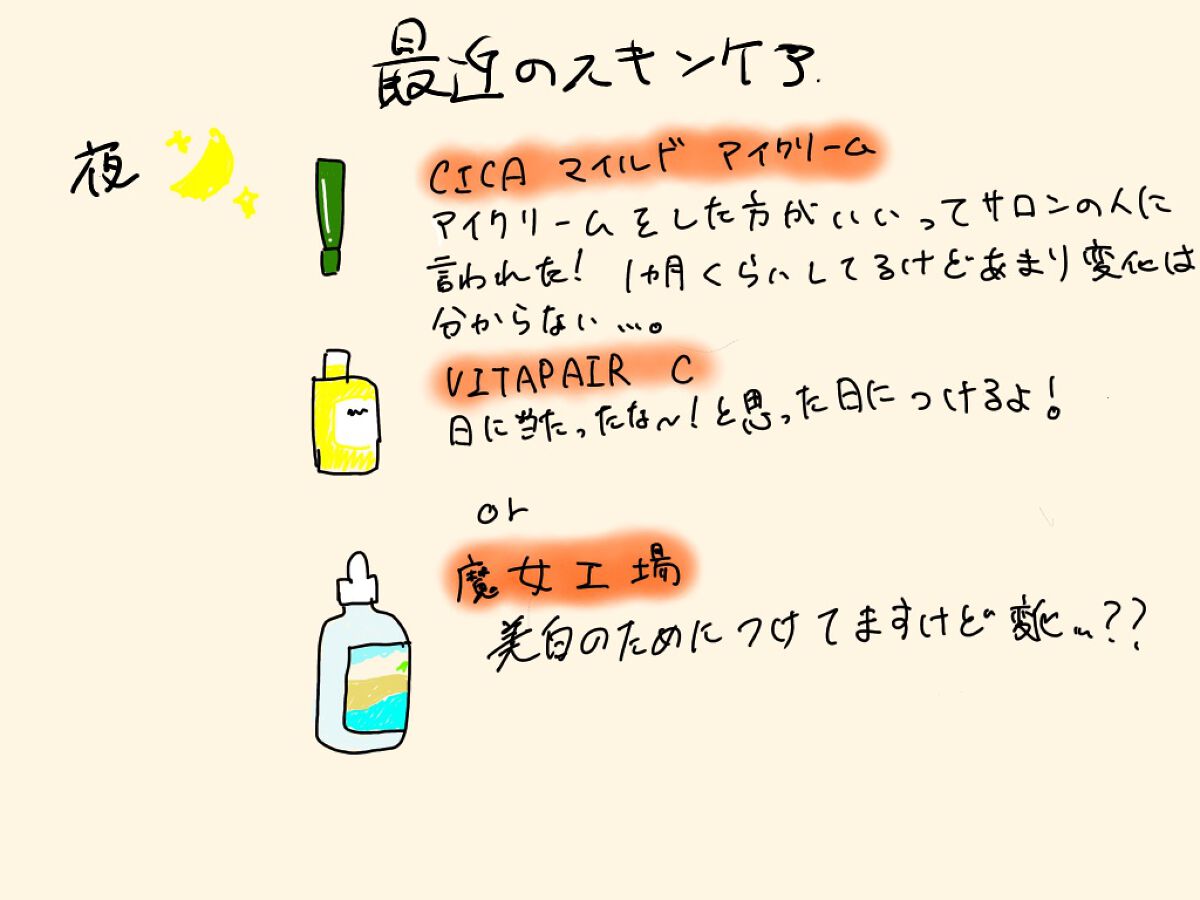 最近のスキンケア
夜
CICA マイルド アイクリーム
アイクリームをした方がいいってサロンの人に
言われた! 1ヵ月くらいしてるけどあまり変化は
分からない…。
VITAPAIR C
日に当たったな〜!と思った日につけるよ!
or
魔女工場
美白のためにつけてますけど変化…??